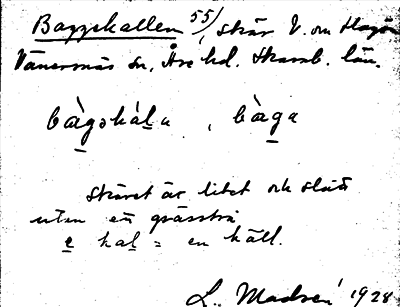 Baggekallen 55/, skär V. om Hagön
Vänersnäs sn, Åse hd. Skarab. län.
bàgəkàla , bàga
Skäret är litet och slätt
utan ett grässtrå
e kal = en häll.
L. 1928